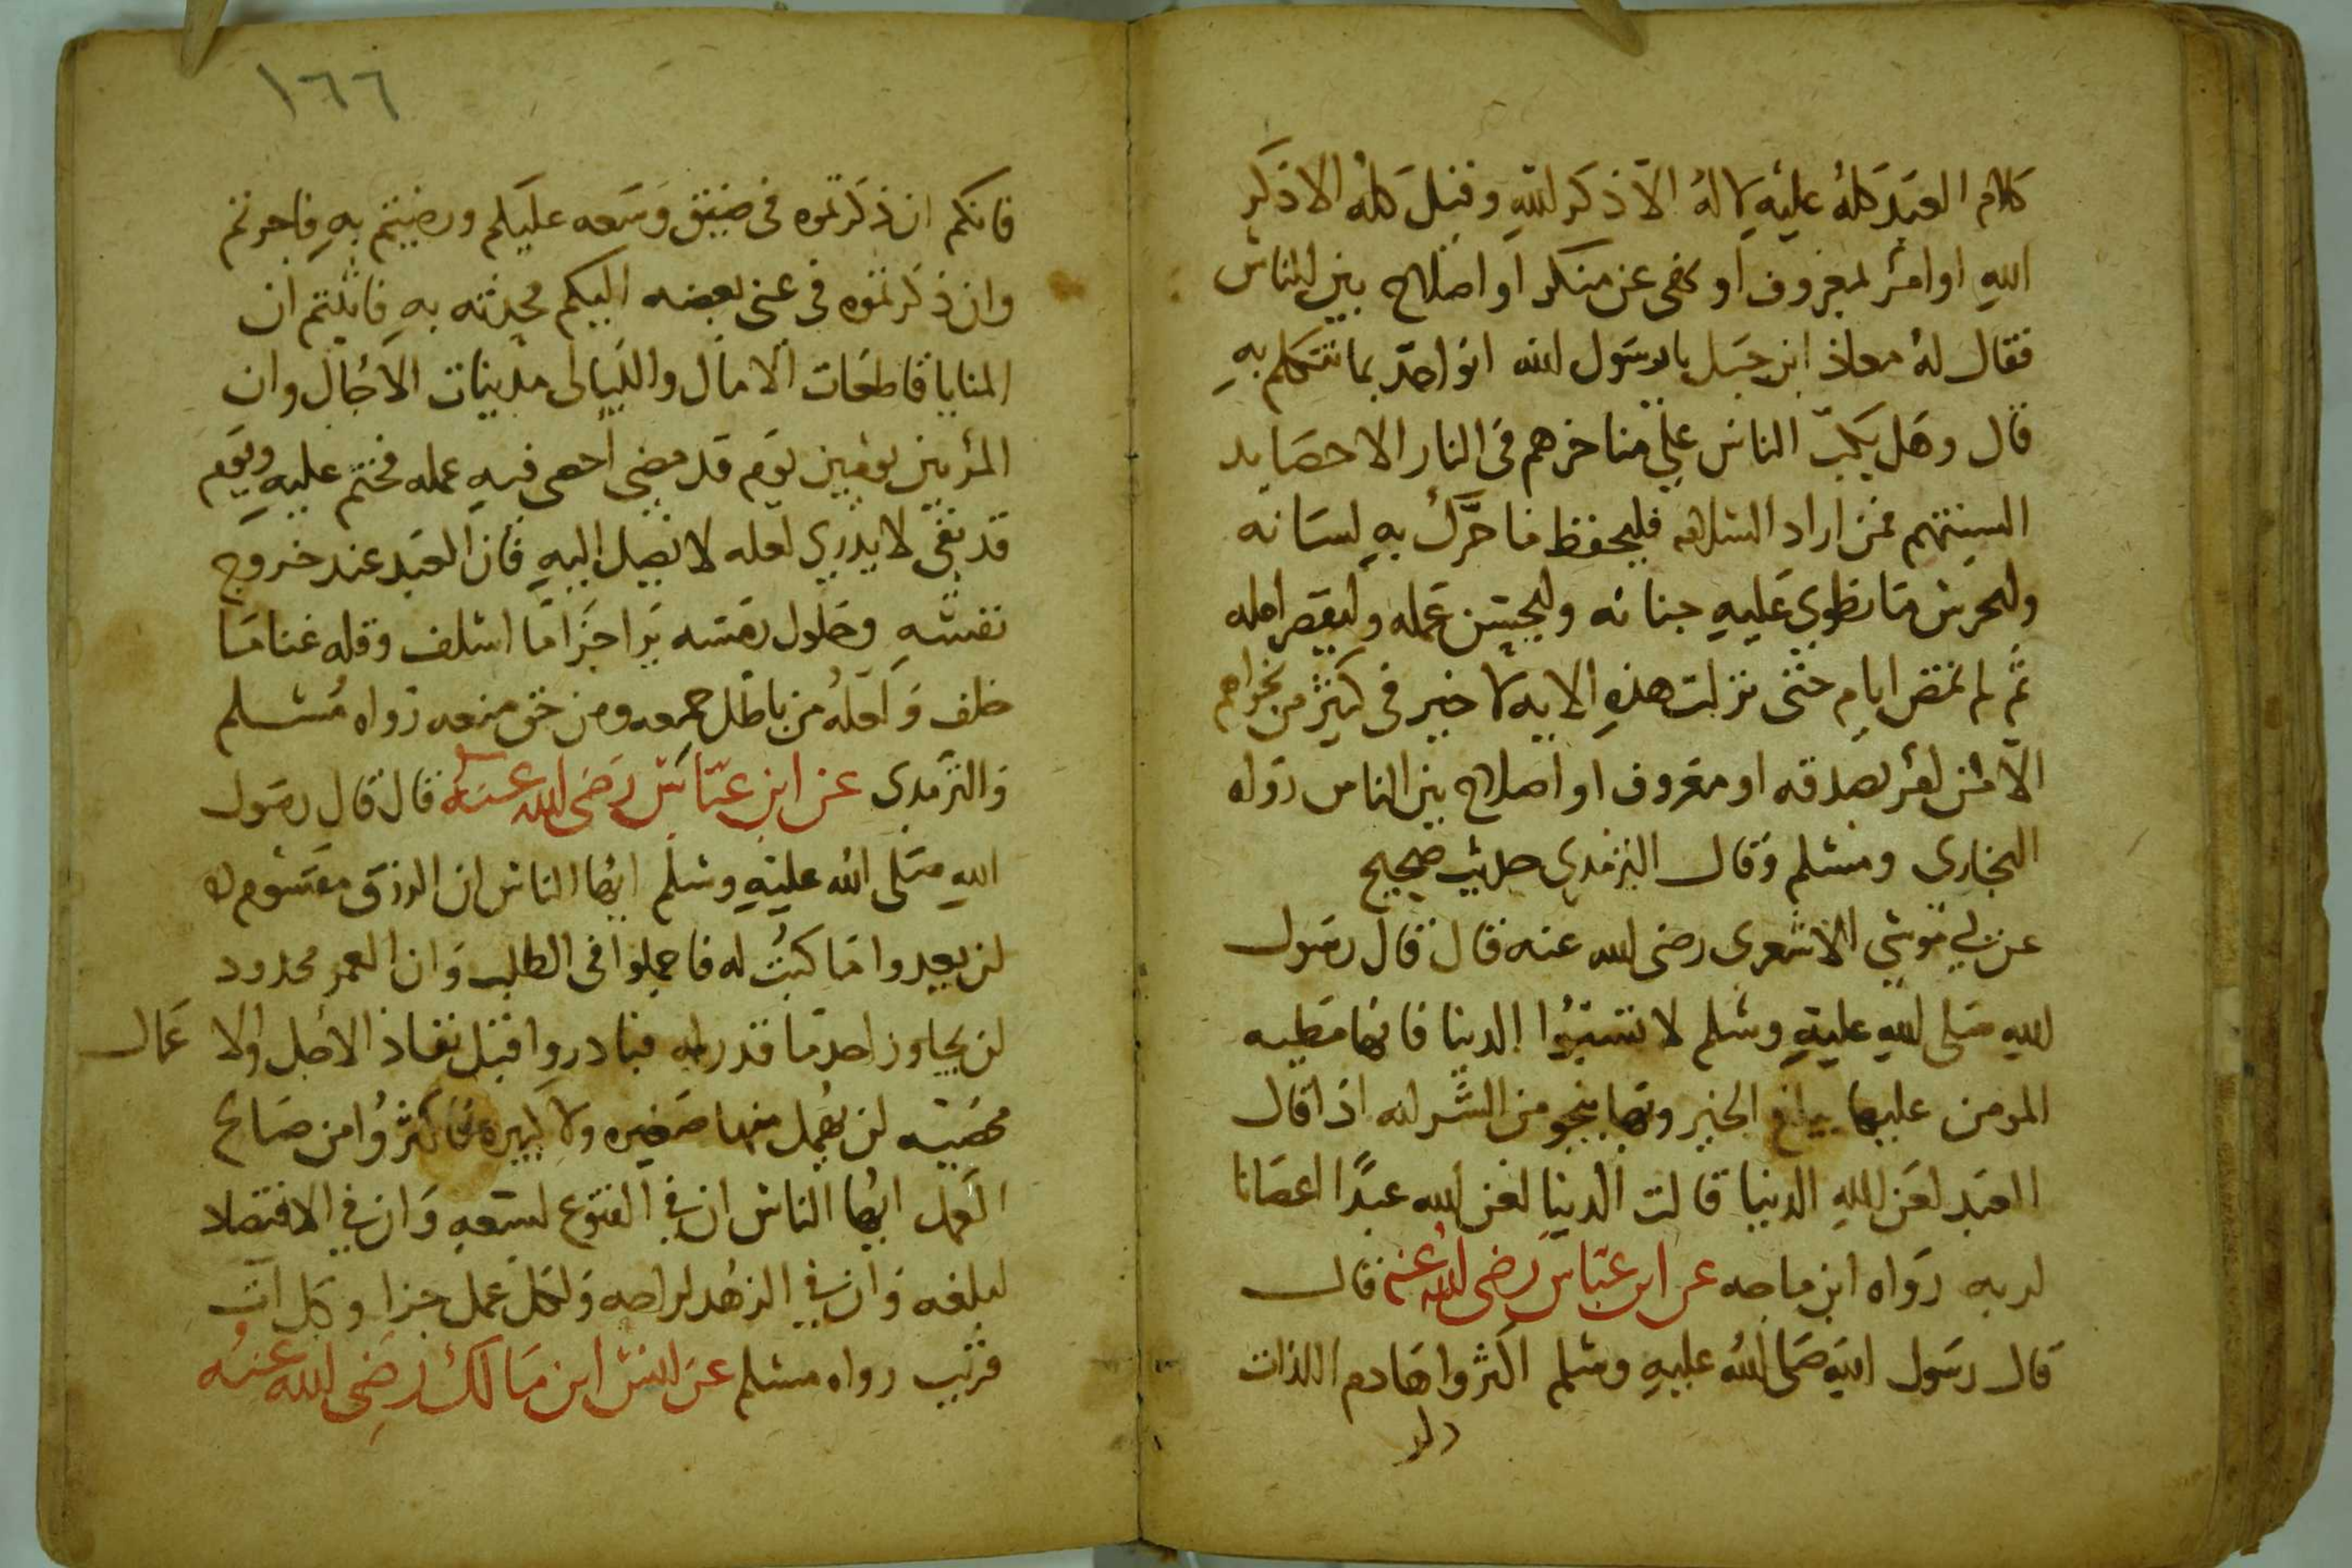 كلام العبد كله عليه لا له الا ذكر لله وقبل كله الا ذكر
الله او امر لمعروف او نهى عن منكر او اصلاح بين الناس
فقال له معاذ ابن جبل يا رسول الله انواخذ بما نتكلم به
قال وهل يكب الناس على مناخرهم فى النار الا حصايد
السنتهم فمن اراد السلامه فليحفظ ما حرك به لسانه
وليحرس ما نطوى عليه جنانه وليحسن عمله وليقصر امله
ثم لم تمض ايام حتى نزلت هذه الايه لا خير فى كثير من نجواهم
الا من امر بصدقه او معروف او اصلاح بين الناس رواه
البخارى ومسلم وقال الترمدى حديث صحيح
عن ابي موسى الاشعرى رضى الله عنه قال قال رسول
الله صلى الله عليه وسلم لا تسبوا الدنيا فانها مطيه
المومن عليها يبلغ الخير وبها ينجو من الشر انه اذا قال
العبد لعن الله الدنيا قالت الدنيا لعن الله عبدا اعصانا
لربه رواه ابن ماجه عن ابن عباس رضى الله عنه قال
قال رسول الله صلى الله عليه وسلم اكثروا هادم اللذات
١٦٦
فانكم ان ذكرتموه فى ضيق وسعه عليكم ورضيتم به فاجرتم
وان ذكرتموه فى غنى بغضه اليكم فجدتم به فاثبتم ان
المنايا قاطعات الامال والليالى مدنيات الاجال وان
المر بين يومين يوم قد مضى احصى فيه عمله فختم عليه ويوم
قد بقى لا يدرى لعله لا يصل اليه فان العبد عند خروج
نفسه وحلول رمسه يرا جزا ما اسلف وقله غنا ما
خلف ولعله من باطل جمعه ومن حق منعه رواه مسلم
والترمدى عن ابن عباس رضى الله عنه قال قال رسول
الله صلى الله عليه وسلم ايها الناس ان الرزق مقسوم
لن يعدوا ما كتب له فاجملوا فى الطلب وان العمر محدود
لن يجاوز احد ما قدر له فبادروا قبل نفاذ الاجل والا عمال
محصيه لن يهمل منها صغيره ولا كبيره فاكثروا من صالح
العمل ايها الناس ان في القنوع لسعه وان في الاقتصاد
لبلغه وان في الزهد لراحه ولكل عمل جزا وكل ات
قريب رواه مسلم عن انس ابن مالك رضى الله عنه